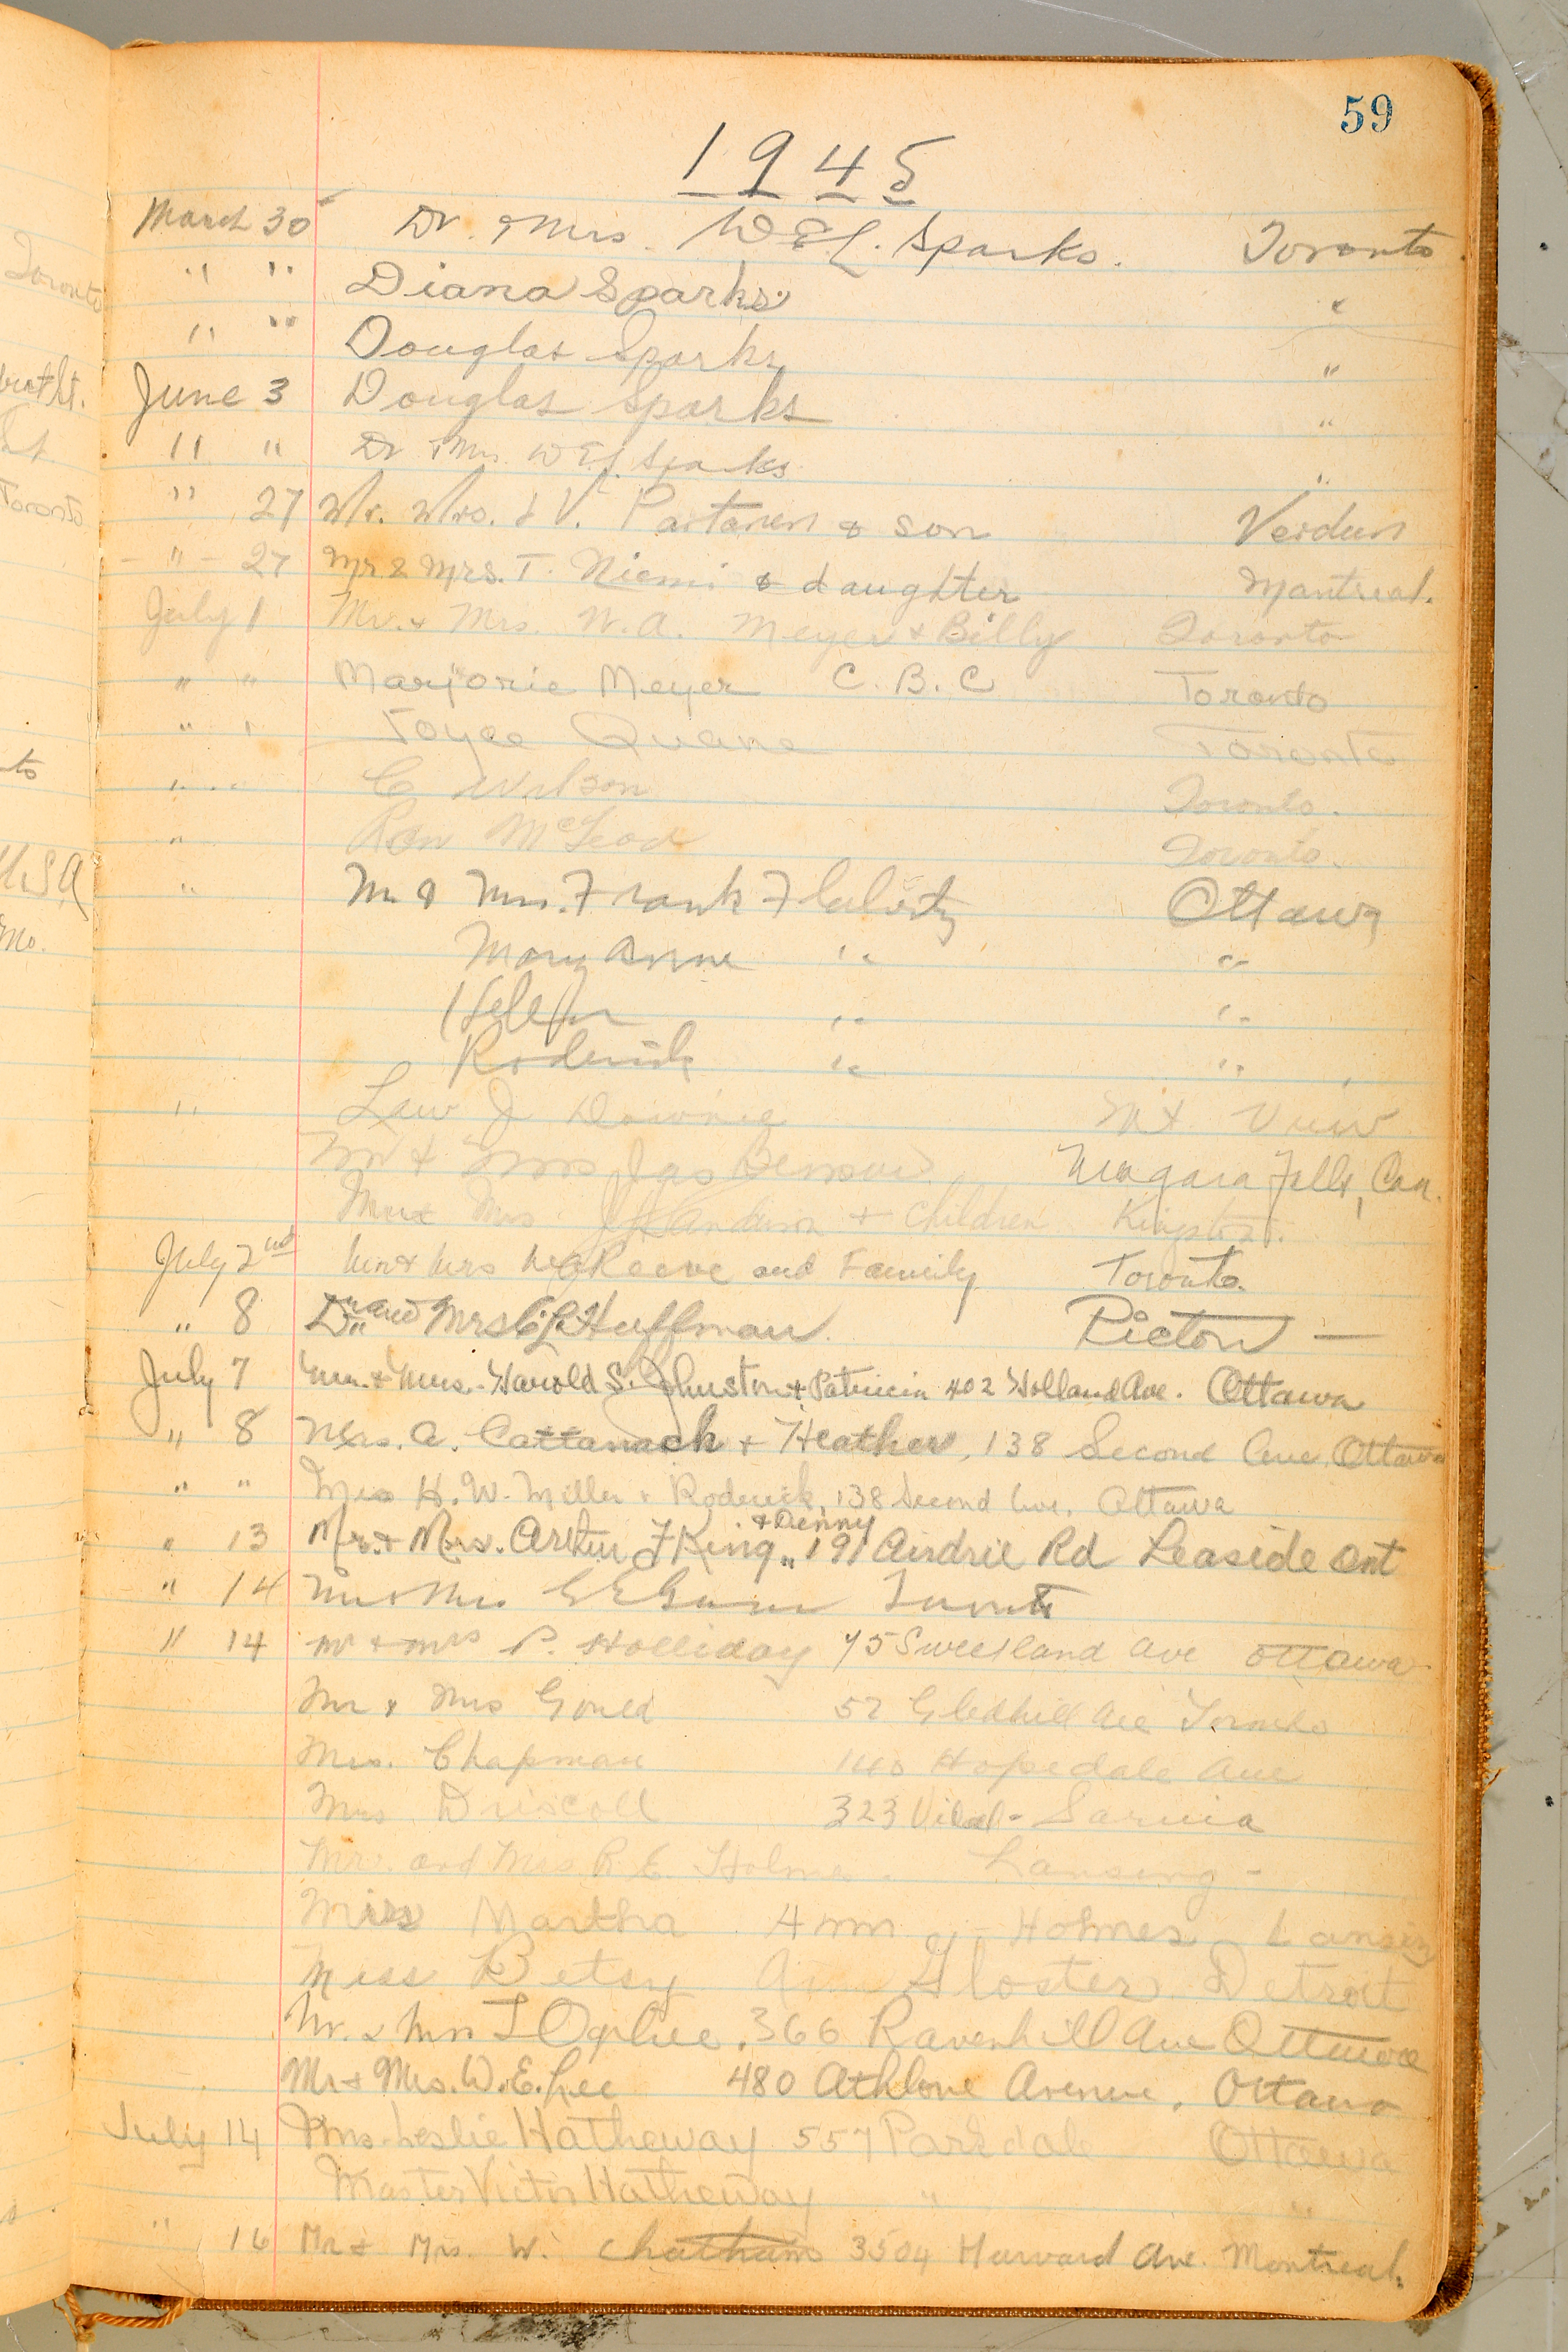 59
1945
March 30 Dr. & Mrs. W E L. Sparks. Toronto
" " Diana Sparks "
" " Douglas Sparks "
June 3 Douglas Sparks "
" " Dr & Mrs W E L Sparks "
" 27 Mr. Mrs. V. Partanen & son Verdun
- " - 27 Mr & Mrs. T. Niemi & daughter Montreal.
July 1 Mr. & Mrs. W. A. Meyer & Billy Toronto
" " Marjorie Meyer C. B. C Toronto
" " Joyce Quane Toronto
" " C Wilson Toronto.
" Ron McLeod Toronto.
" Mr & Mrs. Frank Flaherty Ottawa
Mary Anne " "
Helen " "
Roderick " "
" Law J Downie Mt View
Mr & Mrs Jas Niagara Falls, Can.
Mr & Mrs Anderson + children Kingston.
July 2nd Mr & Mrs Reeve and Family Toronto.
" 8 Dr. and Mrs Huffman. Picton —
July 7 Mr. & Mrs. Harold S. Johnston & Patricia 402 Holland Ave. Ottawa
" 8 Mrs. A. Cattanach + Heather, 138 Second Ave. Ottawa
" " Mrs H. W. Miller & Roderick, 138 Second Ave. Ottawa
+ Denny
" 13 Mr. & Mrs. Arthur F King „ 191 Airdrie Rd Leaside Ont
" 14 Mr & Mrs Toronto
" 14 Mr & Mrs P. Holliday 75 Sweetland Ave Ottawa
Mr & Mrs Gould 52 Gledhill Ave Toronto
Mrs. Chapman 140 Hopedale Ave
Mrs Driscoll 323 Vidal - Sarnia
Mr. and Mrs R. E. Holmes. Lansing -
Miss Martha Ann Holmes Lansing
Miss Betsy Ann Gloster. Detroit
Mr. & Mrs J Ogilvie. 366 Ravenhill Ave Ottawa
Mr & Mrs. W. E. Lee 480 Athlone Avenue, Ottawa
July 14 Mrs. Leslie Hatheway 557 Parkdale Ottawa
Master Victor Hatheway " "
" 16 Mr & Mrs. W. Chatham 3504 Harvard Ave. Montreal.